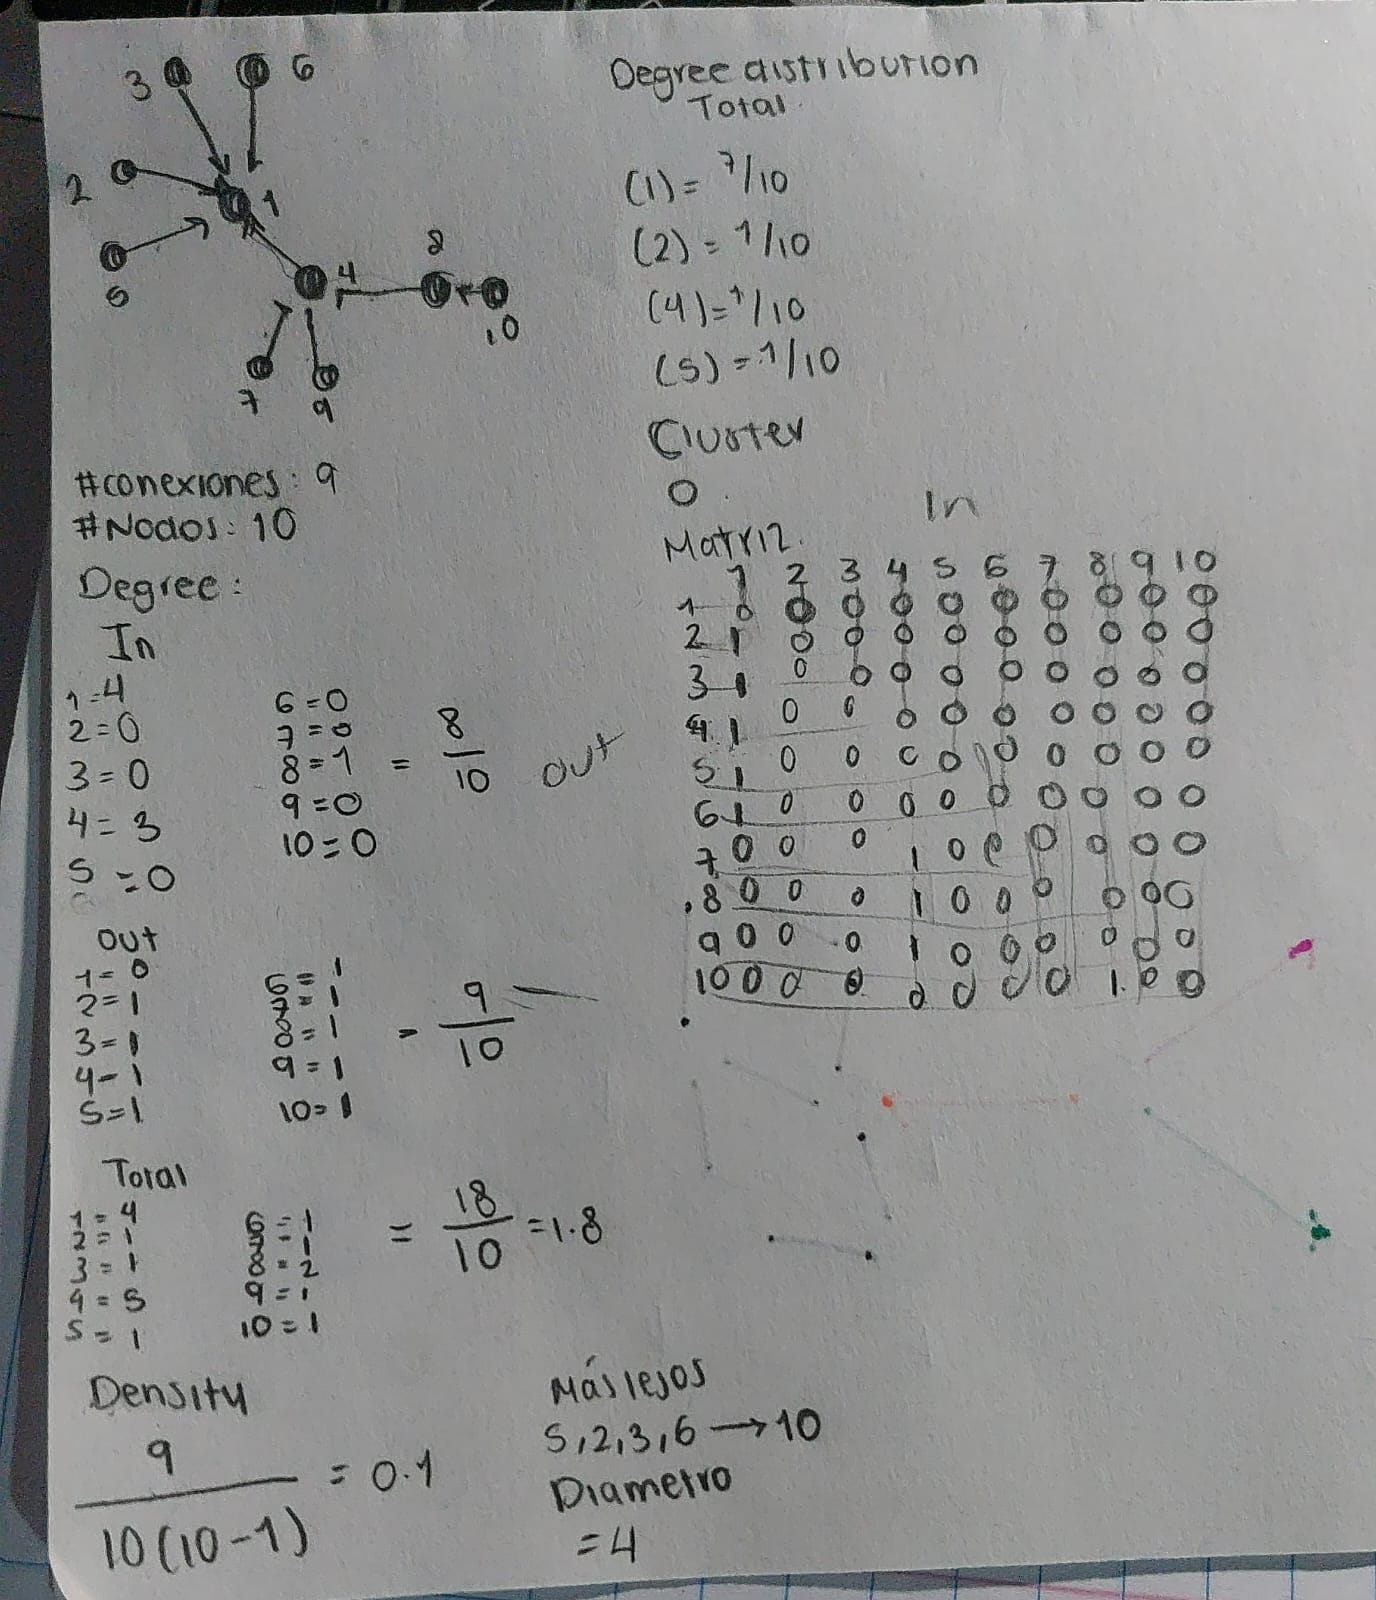 3 6
2 1
5
4 8
10
7 9
#conexiones: 9
#Nodos: 10
Degree:
In
1=4
2=0
3=0
4=3
5=0
6=0
7=0
8=1
9=0
10=0
= 8/10
Out
1=0
2=1
3=1
4-1
5=1
6=1
7=1
8=1
9=1
10=1
= 9/10
Total
1=4
2=1
3=1
4=5
5=1
6=1
7=1
8=2
9=1
10=1
= 18/10 =1.8
Density
9/10(10-1) = 0.1
Degree distribution
Total
(1)= 7/10
(2)= 1/10
(4)=1/10
(5)=1/10
Cluster
0
Matriz.
In
1 2 3 4 5 6 7 8 9 10
out
1 0 0 0 0 0 0 0 0 0 0
2 1 0 0 0 0 0 0 0 0 0
3 1 0 0 0 0 0 0 0 0 0
4 1 0 0 0 0 0 0 0 0 0
5 1 0 0 0 0 0 0 0 0 0
6 1 0 0 0 0 0 0 0 0 0
7 0 0 0 1 0 0 0 0 0 0
8 0 0 0 1 0 0 0 0 0 0
9 0 0 0 1 0 0 0 0 0 0
10 0 0 0 0 0 0 0 1 0 0
Más lejos
5,2,3,6 → 10
Diametro
=4